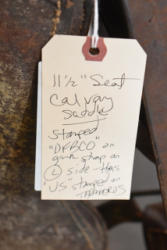 11 1/2" Seat
Calvary
Saddle
Stamped
"DEBCO" on
gun strap on
Ⓛ side - Has
"US stamped on
TAPADEROS